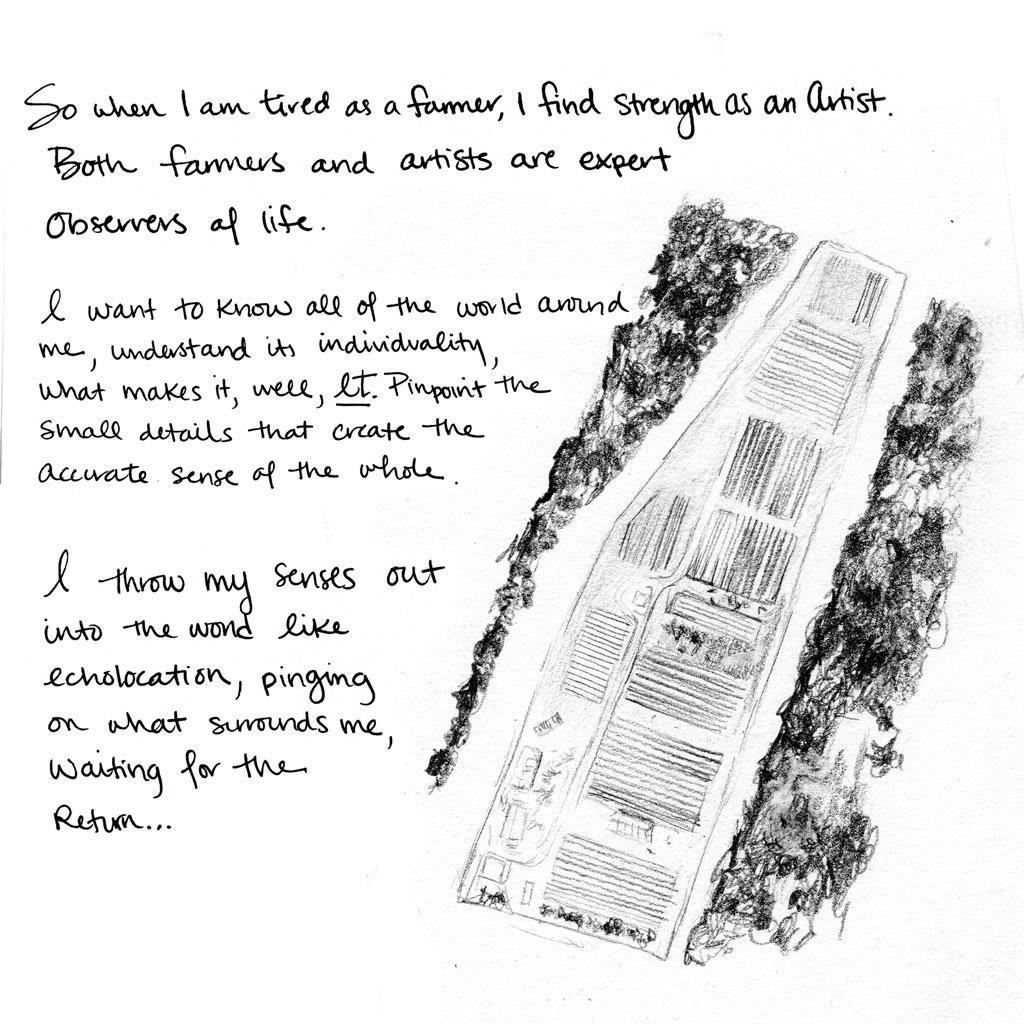 So when I am tired as a farmer, I find strength as an Artist.
Both farmers and artists are expert
Observers of life.
I want to know all of the world around
me, understand its individuality,
what makes it, well, It. Pinpoint the
small details that create the
accurate sense of the whole.
I throw my senses out
into the world like
echolocation, pinging
on what surrounds me,
waiting for the
Return...